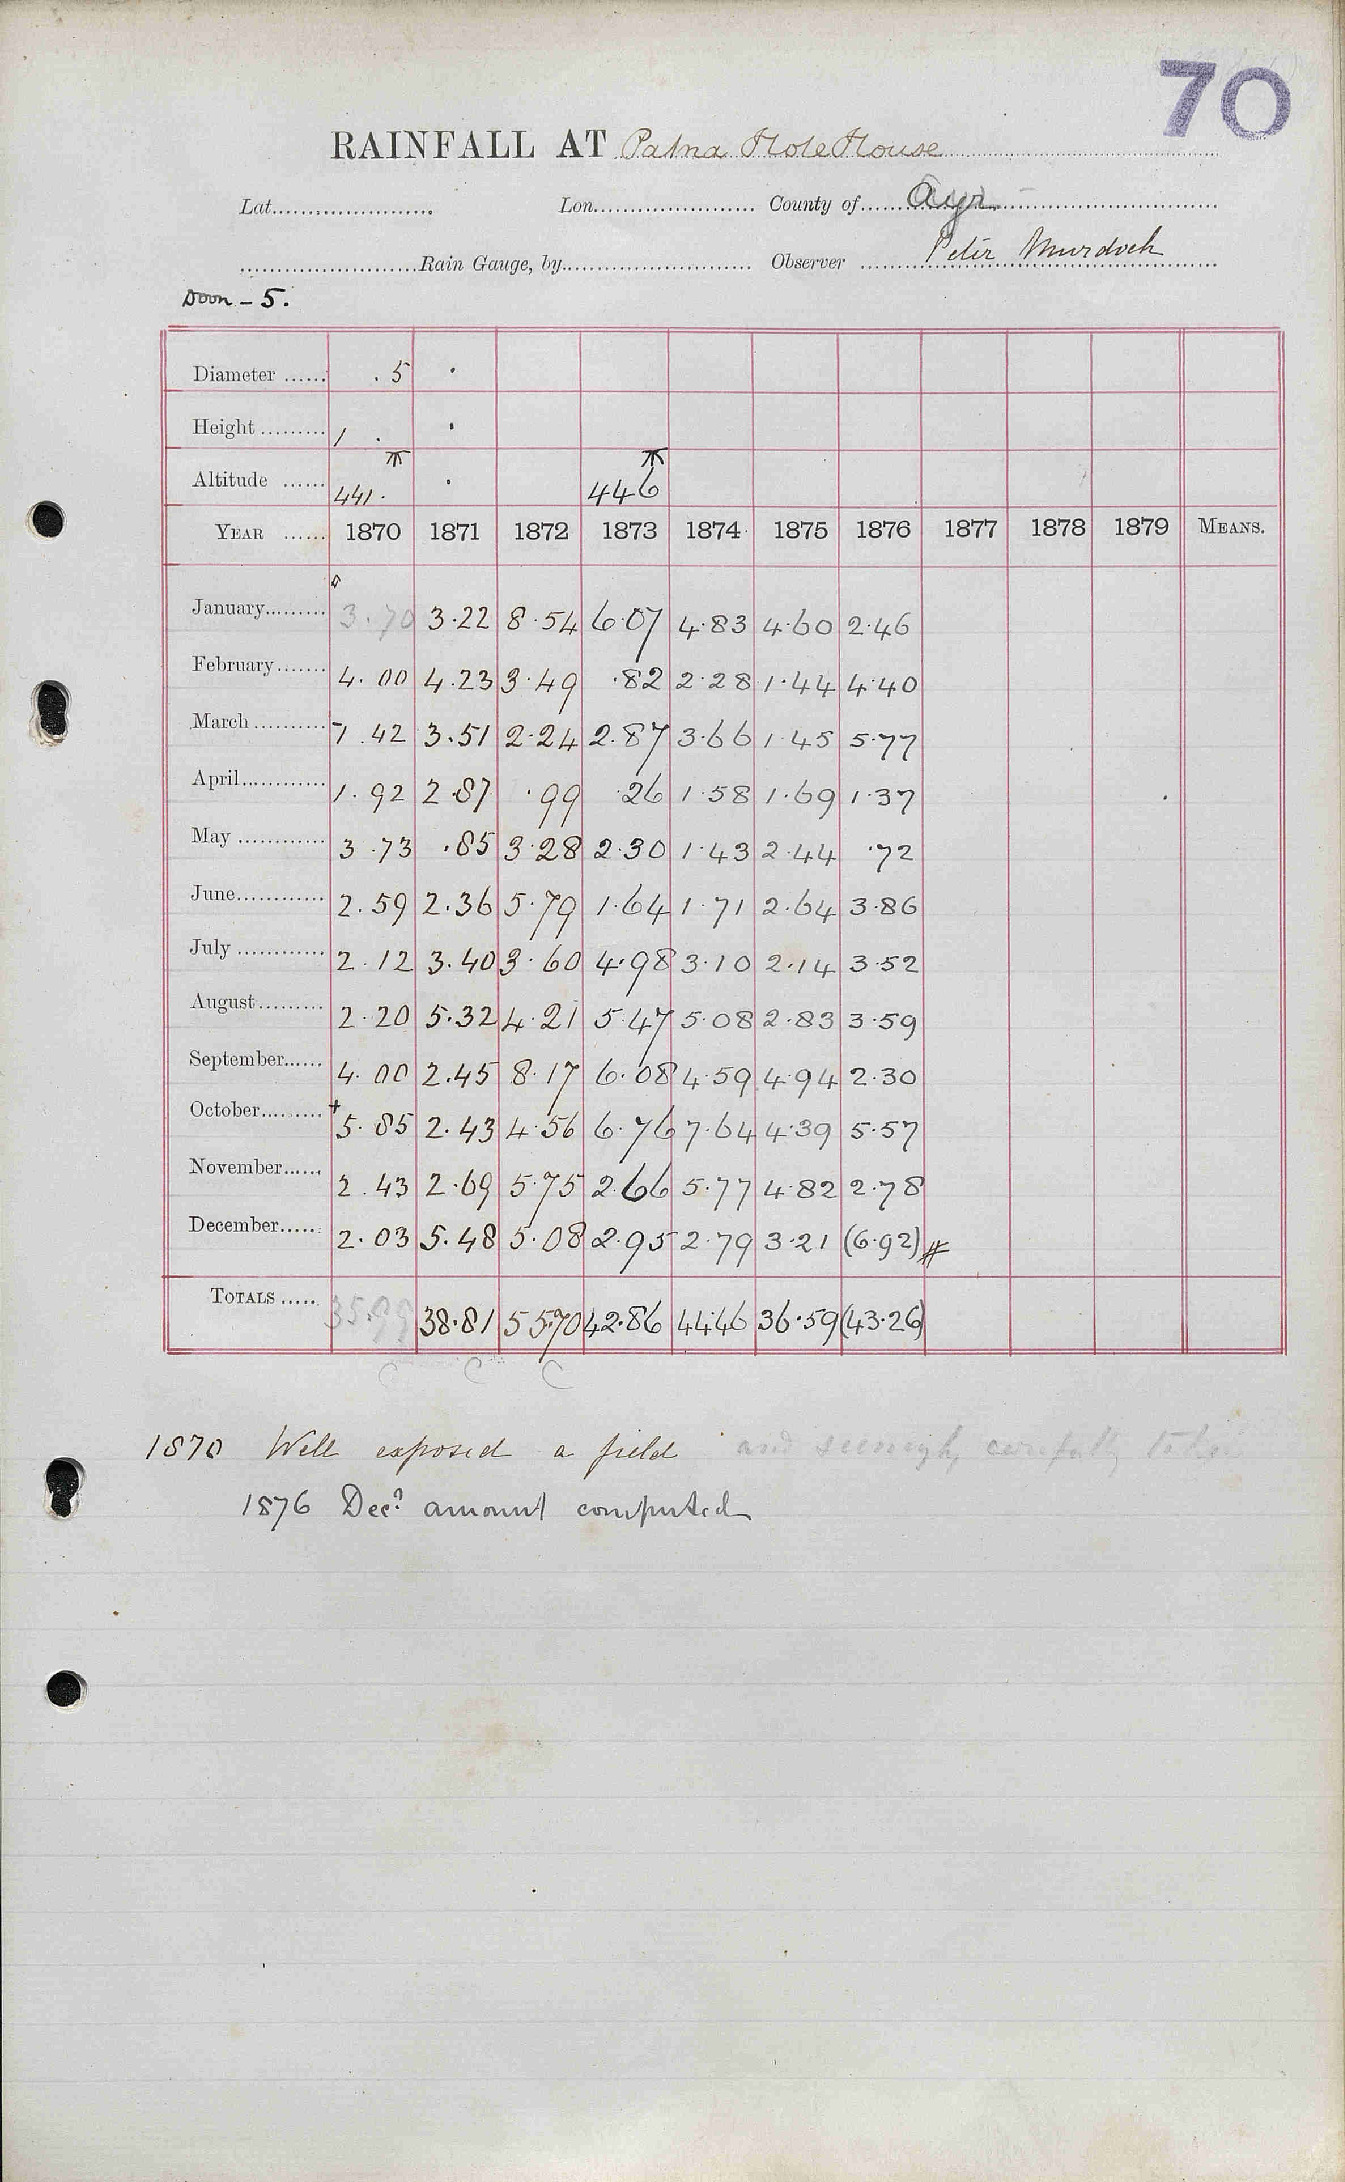 70
RAINFALL AT Patna Hole House
Lat. Lon. County of Ayr
Rain Gauge, by Observer Peter Murdoch
Doon - 5.
Diameter . 5 .
Height 1 . .
Altitude 441. . 446
YEAR 1870 1871 1872 1873 1874 1875 1876 1877 1878 1879 MEANS.
January 3.70 3.22 8.54 6.07 4.83 4.60 2.46
February 4.00 4.23 3.49 .82 2.28 1.44 4.40
March 1.42 3.51 2.24 2.87 3.66 1.45 5.77
April 1.92 2.87 .99 .26 1.58 1.69 1.37
May 3.73 .85 3.28 2.30 1.43 2.44 .72
June 2.59 2.36 5.79 1.64 1.71 2.64 3.86
July 2.12 3.40 3.60 4.98 3.10 2.14 3.52
August 2.20 5.32 4.21 5.47 5.08 2.83 3.59
September 4.00 2.45 8.17 6.08 4.59 4.94 2.30
October + 5.85 2.43 4.56 6.76 7.64 4.39 5.57
November 2.43 2.69 5.75 2.66 5.77 4.82 2.78
December 2.03 5.48 5.08 2.95 2.79 3.21 (6.92) #
TOTALS 35.99 38.81 55.70 42.86 44.46 36.59 (43.26)
C C C
1870 Well exposed a field and seemingly carefully taken
1876 Decr amount computed